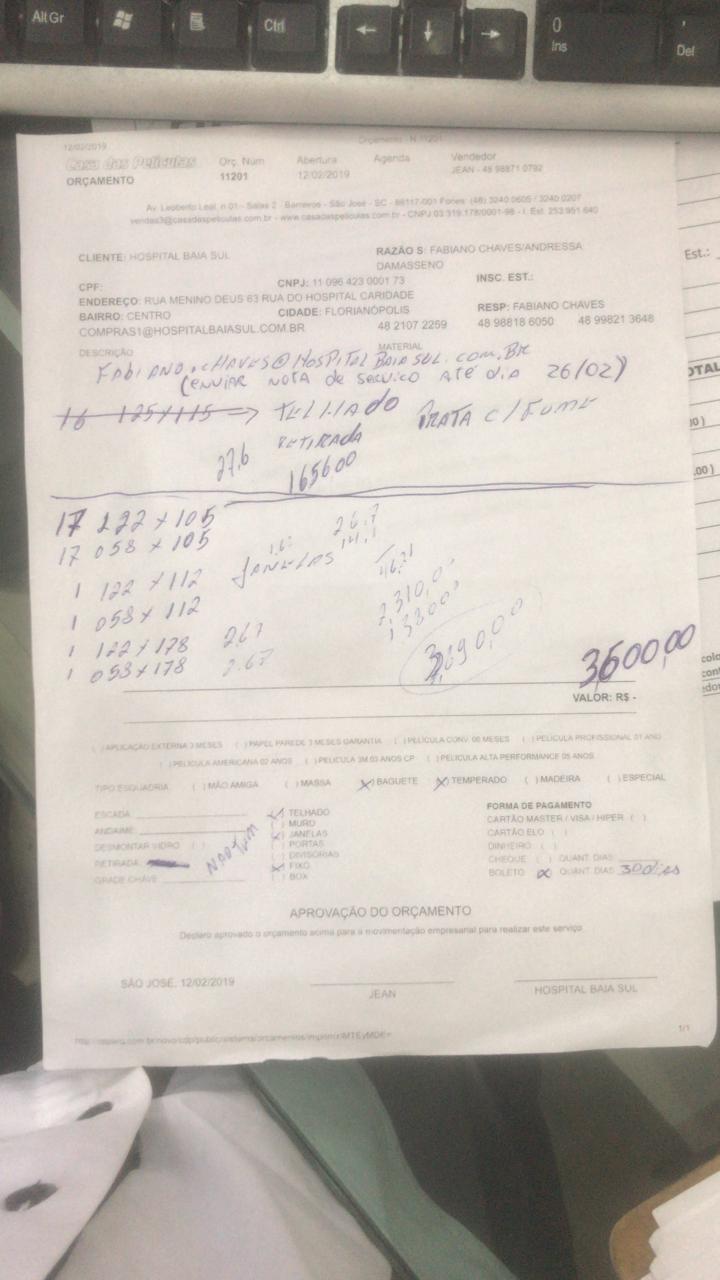 Alt Gr
Ctrl
0
Ins
,
Del
12/02/2019
Orçamento - N.11201
Casa das Películas
ORÇAMENTO
Orç. Núm
11201
Abertura
12/02/2019
Agenda
Vendedor
JEAN - 48 98871 0792
Av. Leoberto Leal, n 01 - Salas 2 - Barreiros - São José - SC - 88117-001 Fones: (48) 3240 0605 / 3240 0207
vendas3@casadaspeliculas.com.br - www.casadaspeliculas.com.br - CNPJ 03.319.178/0001-98 - I. Est. 253.951.640
CLIENTE: HOSPITAL BAIA SUL
RAZÃO S: FABIANO CHAVES/ANDRESSA
DAMASSENO
CPF:
CNPJ: 11 096 423 0001 73
INSC. EST.:
ENDEREÇO: RUA MENINO DEUS 63 RUA DO HOSPITAL CARIDADE
BAIRRO: CENTRO
CIDADE: FLORIANÓPOLIS
RESP: FABIANO CHAVES
COMPRAS1@HOSPITALBAIASUL.COM.BR
48 2107 2259
48 98818 6050
48 99821 3648
DESCRIÇÃO
MATERIAL
FABIANO.CHAVES@HOSPITALBAIASUL.COM.BR
(ENVIAR NOTA de SERVICO ATÉ dIA 26/02)
16 125x115 → TELHAdO PRATA C/FUME
RETIRADA
27,6
165600
17 122 x 105
17 058 x 105
26,7
1 122 x 112
JANELAS
1 058 x 112
1 122 x 178
2.67
1 058 x 178
2.67
2,310,0
13800
3,690,00
3600,00
VALOR: R$ -
( ) APLICAÇÃO EXTERNA 3 MESES ( ) PAPEL PAREDE 3 MESES GARANTIA ( ) PELICULA CONV. 06 MESES ( ) PELICULA PROFISSIONAL 01 ANO
( ) PELICULA AMERICANA 02 ANOS ( ) PELICULA 3M 03 ANOS CP ( ) PELICULA ALTA PERFORMANCE 05 ANOS
TIPO ESQUADRIA: ( ) MÃO AMIGA ( ) MASSA (X) BAGUETE (X) TEMPERADO ( ) MADEIRA ( ) ESPECIAL
ESCADA
ANDAIME
DESMONTAR VIDRO ( )
RETIRADA
GRADE CHAVE
(X) TELHADO
( ) MURO
(X) JANELAS
( ) PORTAS
( ) DIVISORIAS
(X) FIXO
( ) BOX
FORMA DE PAGAMENTO
CARTÃO MASTER / VISA / HIPER ( )
CARTÃO ELO ( )
DINHEIRO ( )
CHEQUE ( ) QUANT. DIAS
BOLETO (X) QUANT. DIAS 30dias
APROVAÇÃO DO ORÇAMENTO
Declaro aprovado o orçamento acima para a movimentação empresarial para realizar este serviço
SÃO JOSÉ, 12/02/2019
JEAN
HOSPITAL BAIA SUL
1/1
Est.: